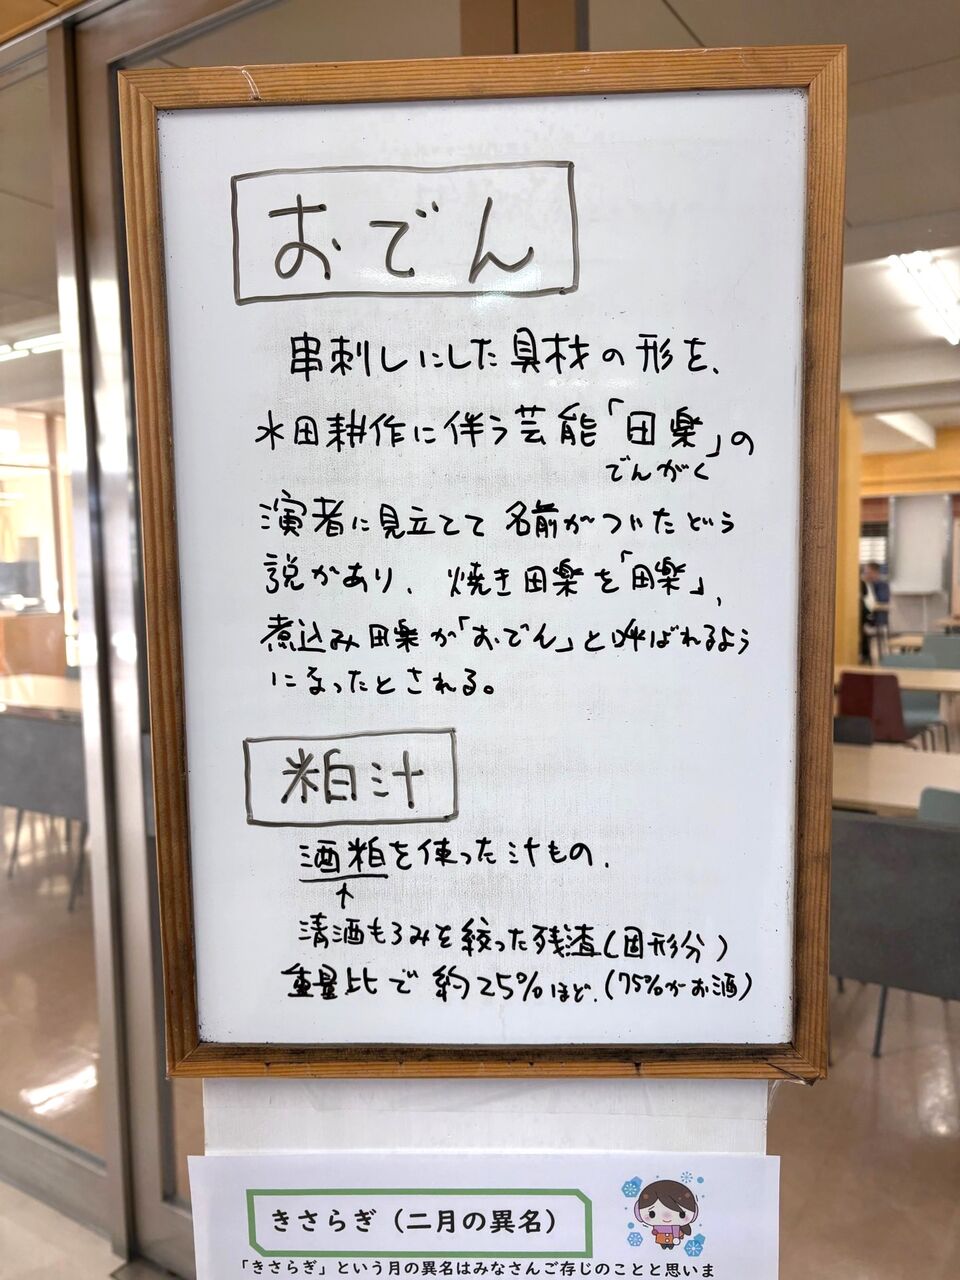 おでん
串刺しにした具材の形を、
水田耕作に伴う芸能「田楽」の
でんがく
演者に見立てて名前がついたという
説があり、焼き田楽を「田楽」、
煮込み田楽が「おでん」と呼ばれるよう
になったとされる。
粕汁
酒粕を使った汁もの。
↑
清酒もろみを絞った残渣(固形分)
重量比で約25%ほど。(75%がお酒)
きさらぎ（二月の異名）
「きさらぎ」という月の異名はみなさんご存じのことと思いま